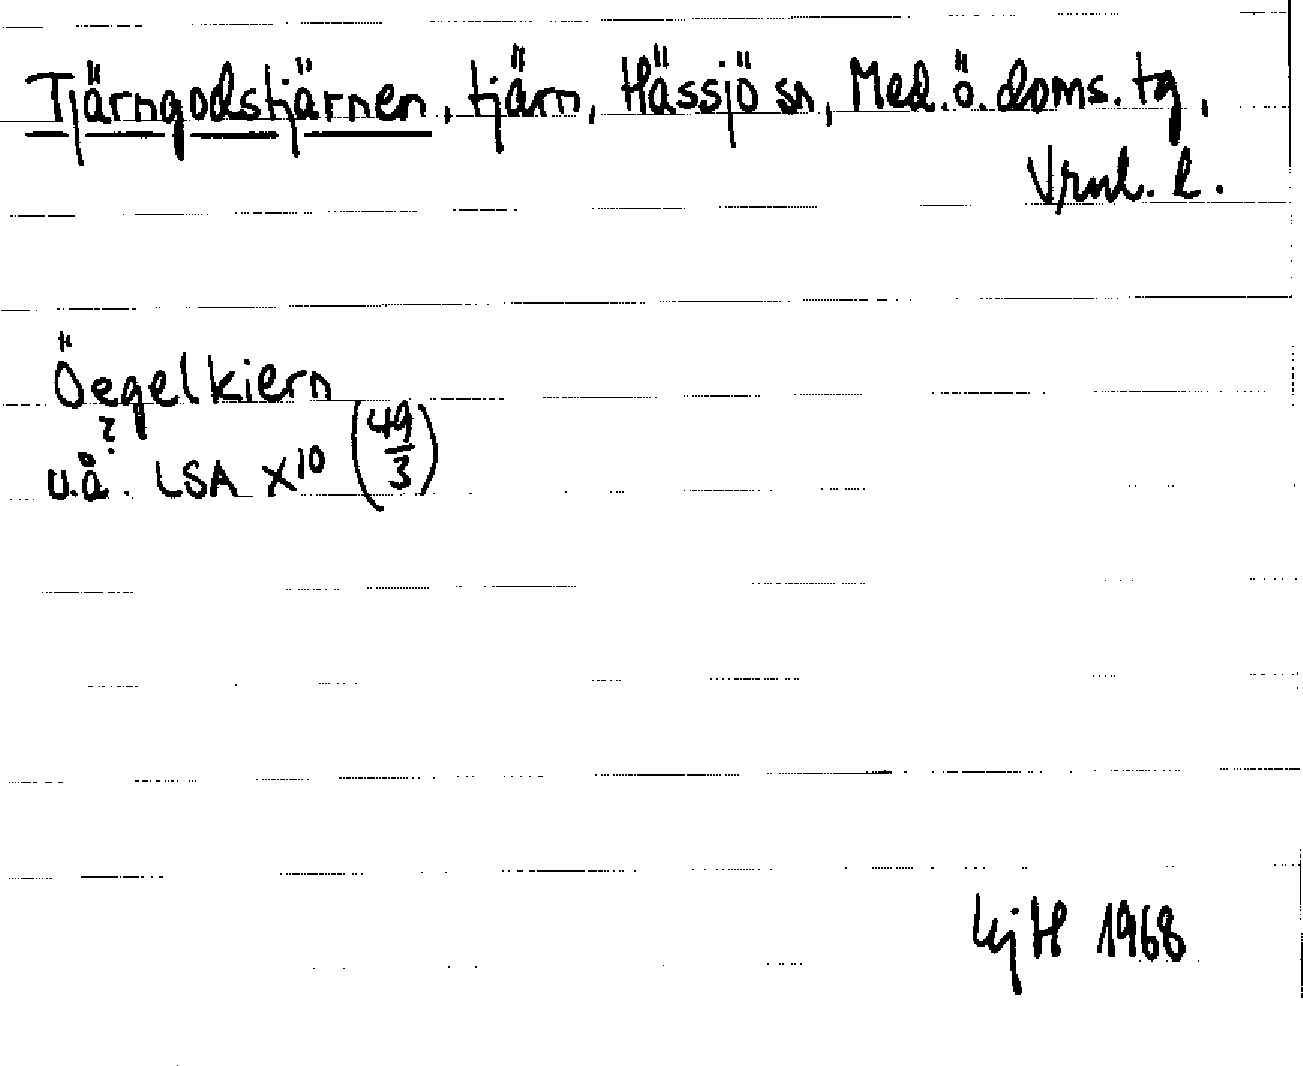 Tjärngodstjärnen, tjärn, Hässjö sn, Med. ö. doms. tg,
Vrnl. l.
Öegelkiern
?
u.å. LSA X10 (49/3)
LijH 1968